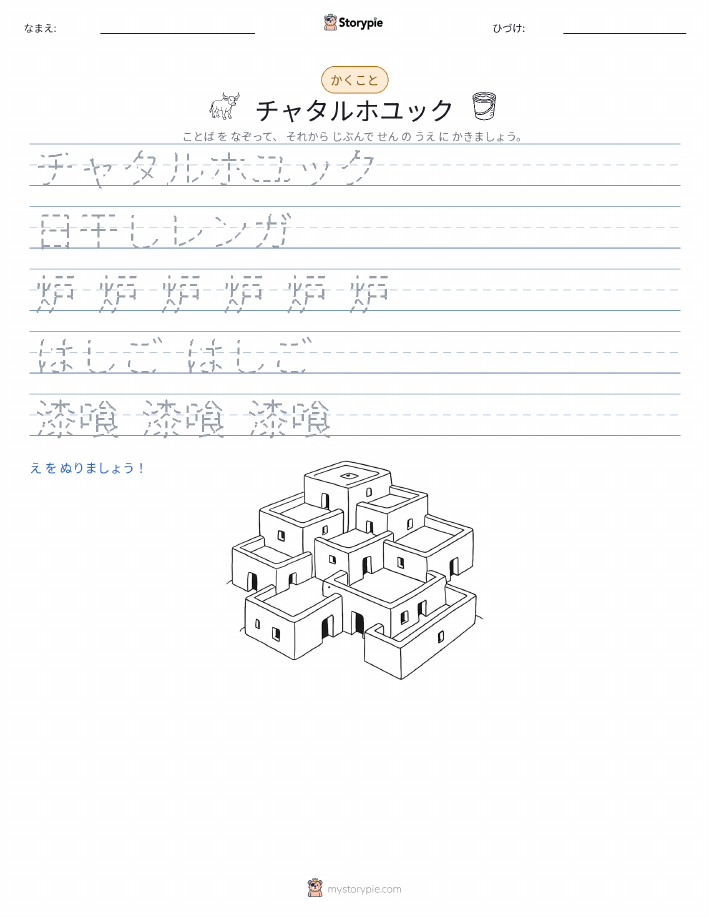 なまえ:
Storypie
ひづけ:
かくこと
チャタルホユック
ことば を なぞって、 それから じぶんで せん の うえ に かきましょう。
チャタルホユック
日干しレンガ
炉 炉 炉 炉 炉 炉
はしご はしご
漆喰 漆喰 漆喰
え を ぬりましょう！
mystorypie.com